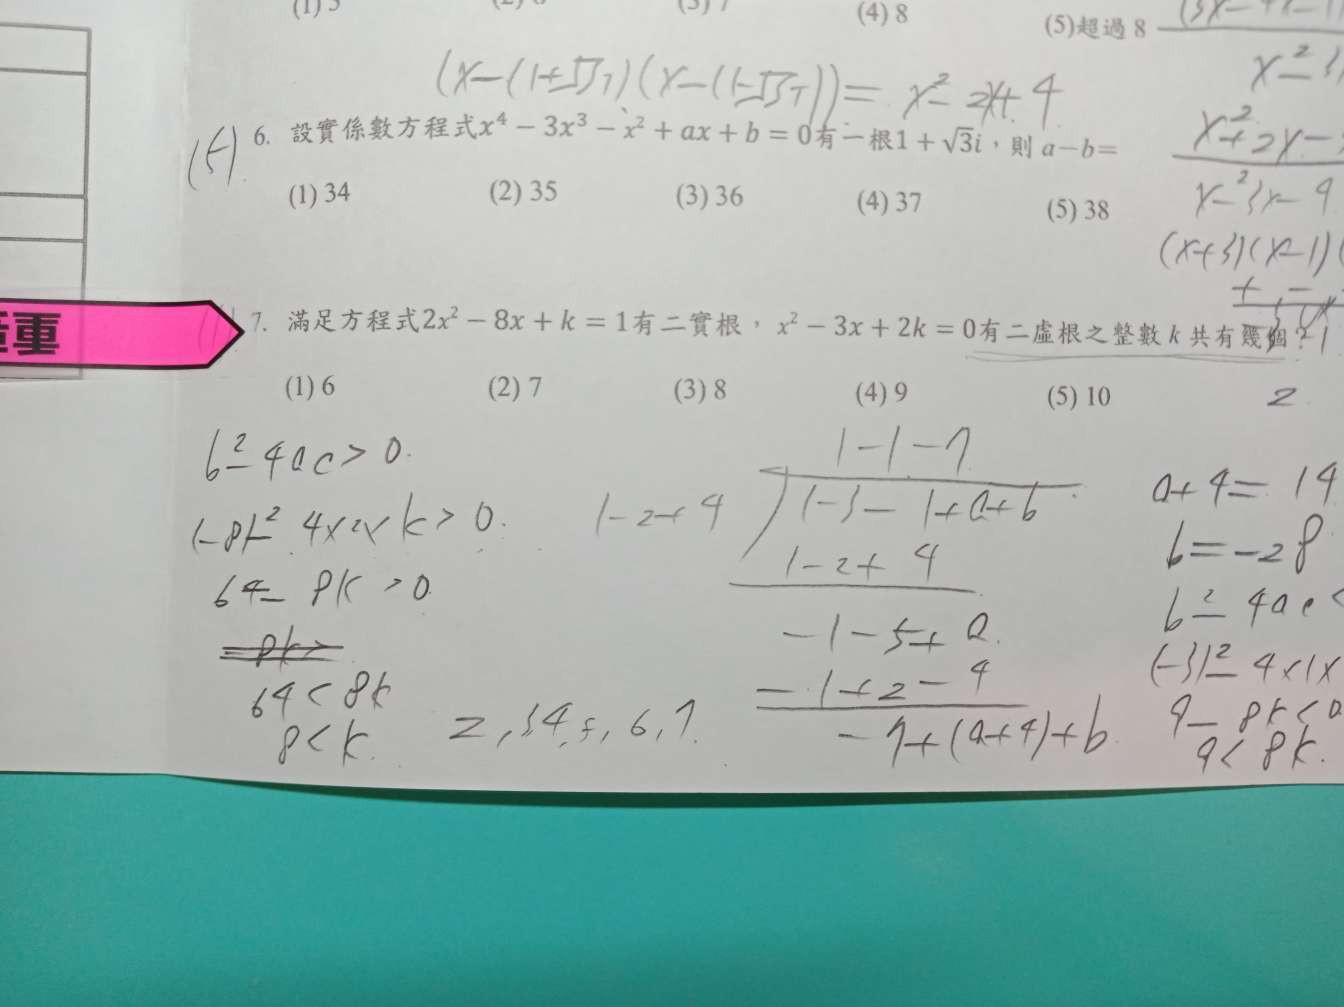 (4) 8
(5)超過 8
(x-(1+√3i)(x-(1-√3i))= x²-2x+4
(5)
6. 設實係數方程式x⁴ − 3x³ − x² + ax + b = 0有一根1 + √3i，則 a−b=
(1) 34 (2) 35 (3) 36 (4) 37 (5) 38
x²+2x-
x²-3x-9
(x+3)(x-1)(
重
7. 滿足方程式2x² − 8x + k = 1有二實根，x² − 3x + 2k = 0有二虛根之整數 k 共有幾個？
(1) 6 (2) 7 (3) 8 (4) 9 (5) 10
2
b²-4ac>0.
(-8)²-4×2×k>0.
64-8k>0
64<8k
8<k.
2,3,4,5,6,7.
1-1-7
1-2+4
1-3-1+a+b
1-2+4
-1-5+a.
-1+2-4
-7+(a+4)+b
a+4=14
b=-28
b²-4ac<
(-3)²-4×1×
9-8k<0
9<8k.